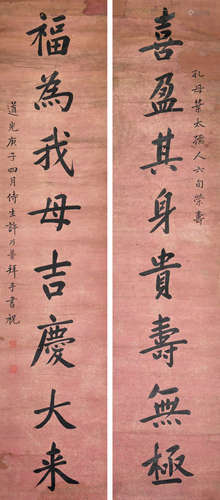 孔母葉太孺人六旬榮壽
喜盈其身貴壽無極
福為我母吉慶大来
道光庚子四月侍生許乃普拜手書祝